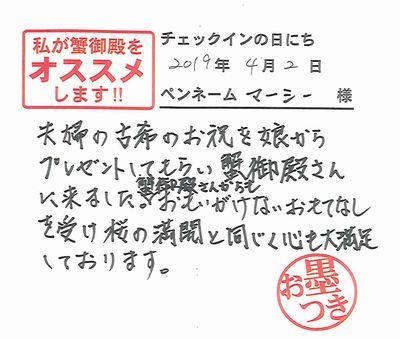 私が蟹御殿を
オススメ
します!!
チェックインの日にち
2019年 4月 2日
ペンネーム マーシー 様
夫婦の古希のお祝を娘から
プレゼントしてもらい蟹御殿さん
に来ました。蟹御殿さんからも
おもいがけないおもてなし
を受け桜の満開と同じく心も大満足
しております。
お墨つき